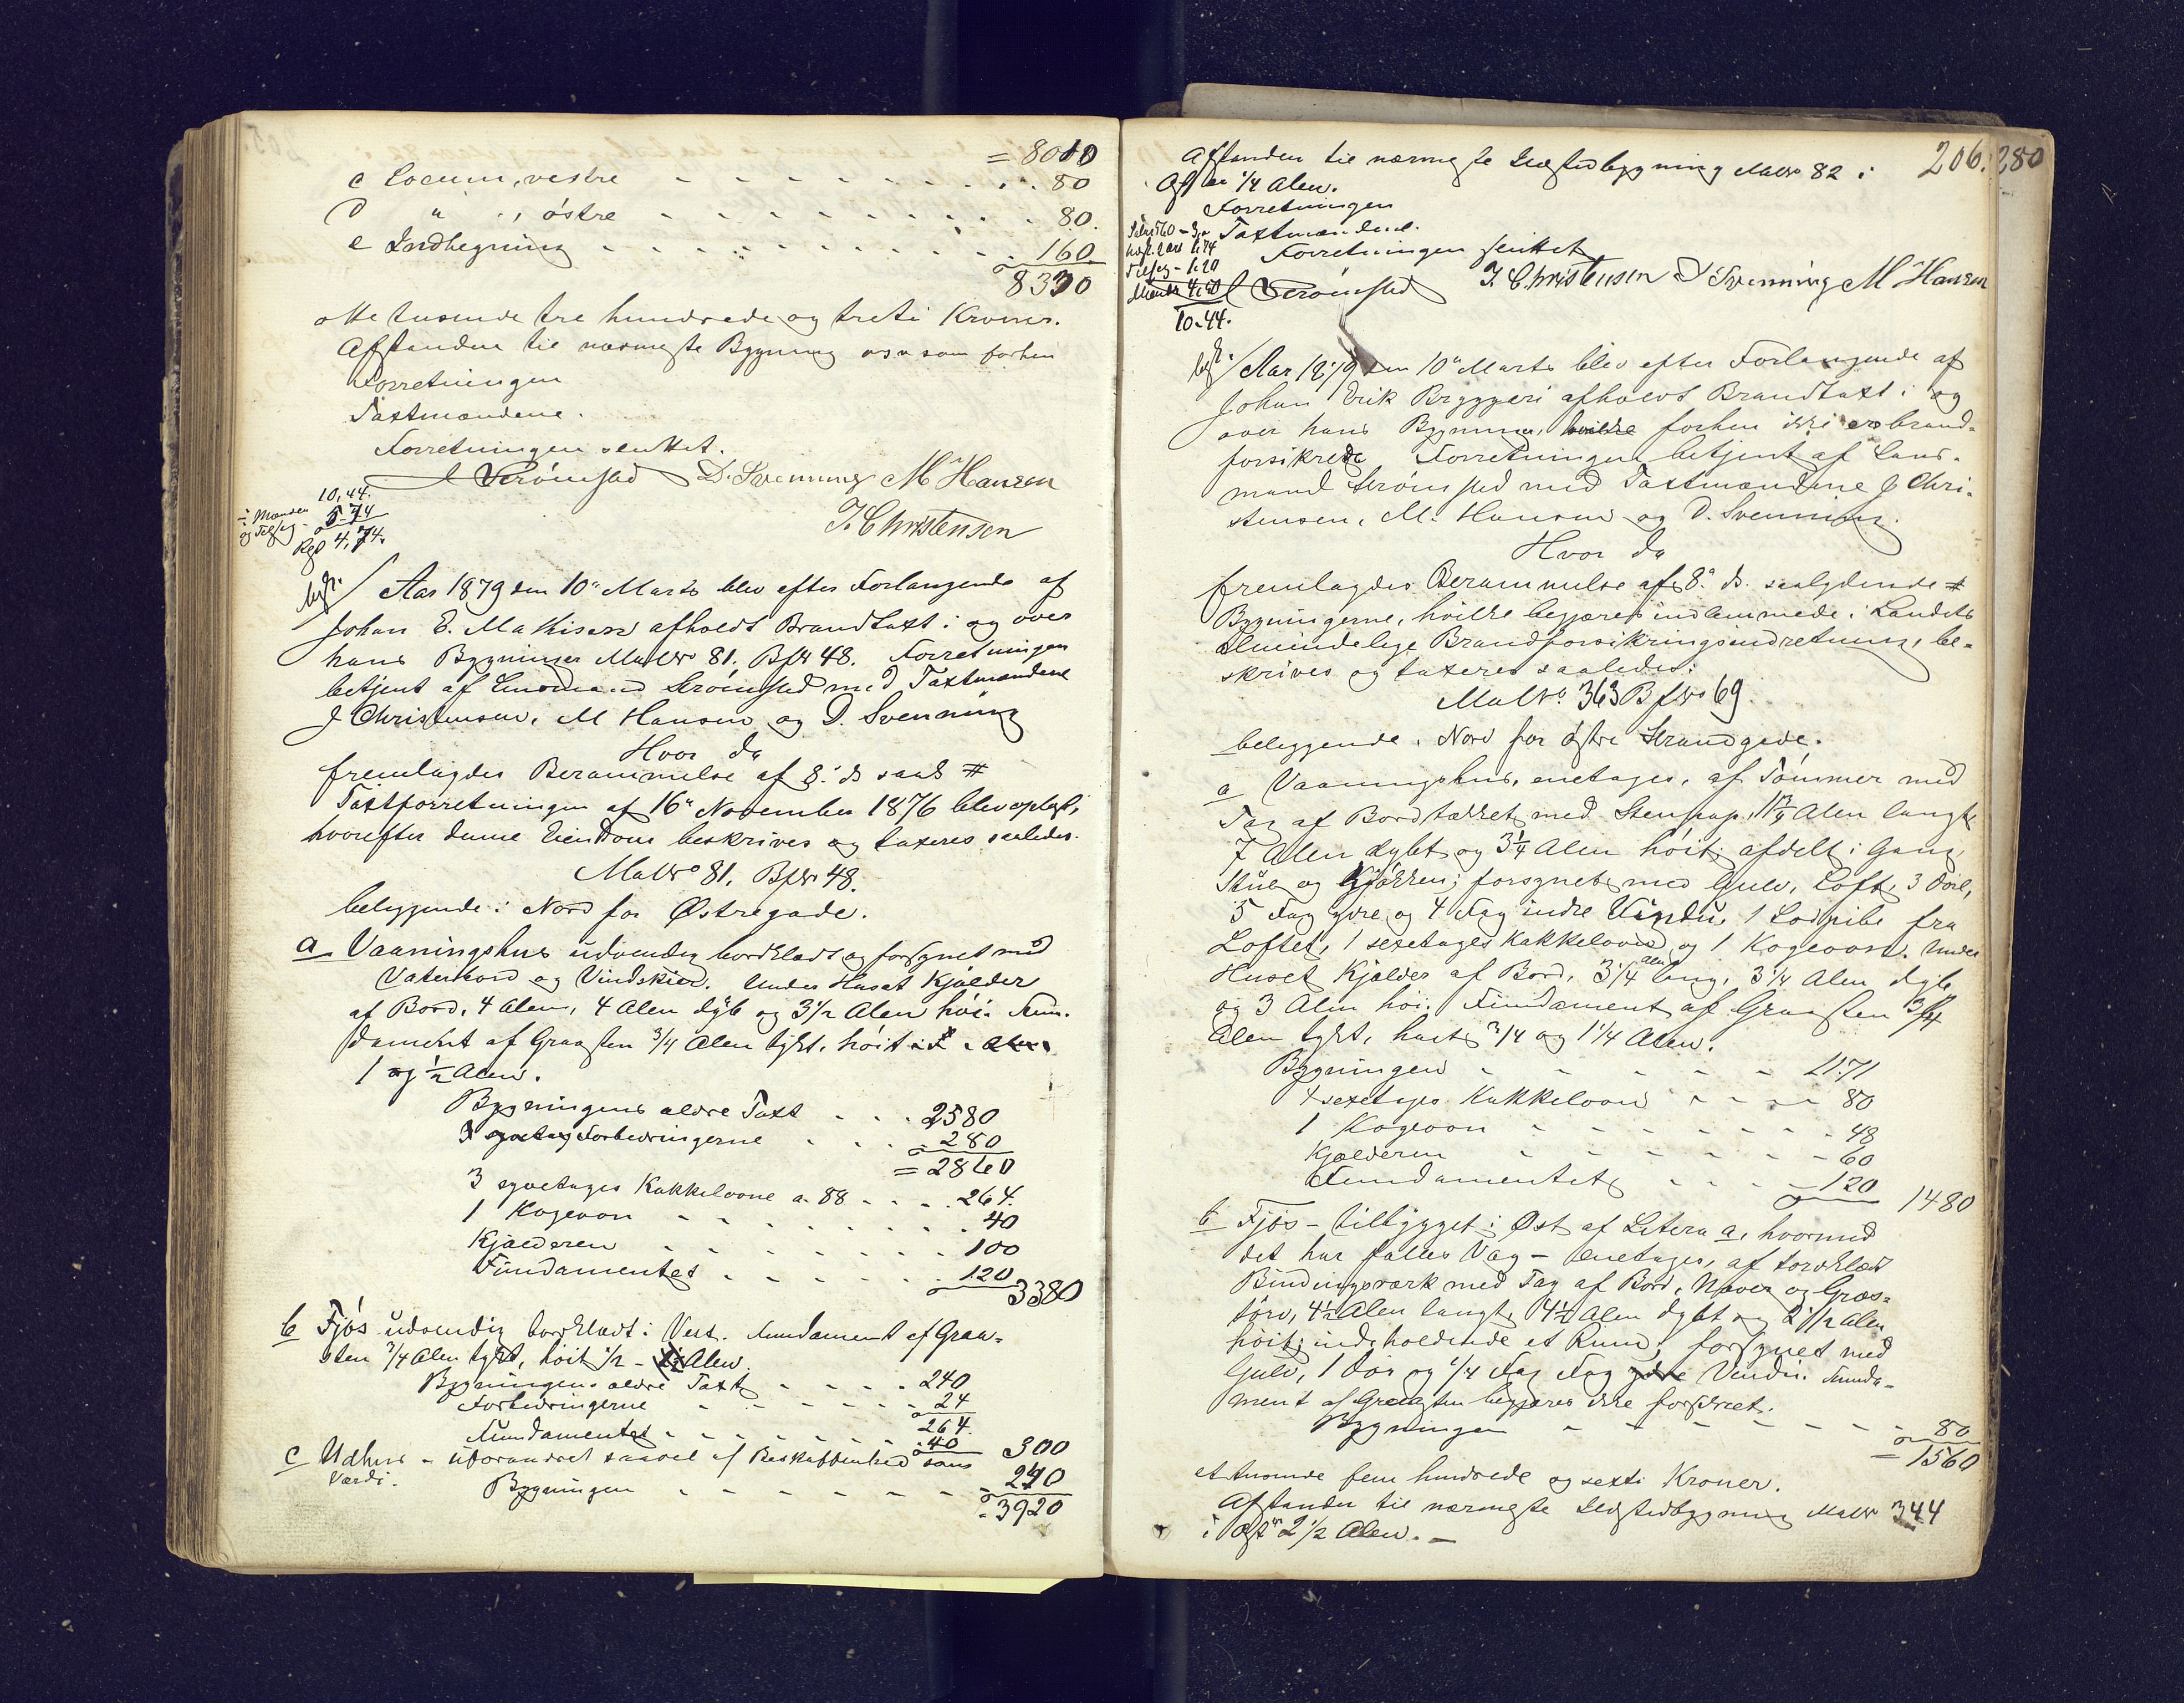 = 8010
c Locum, vestre - - - - - 80
d " ", østre - - - - - 80.
e Indhegning - - - - - 160
8330
otte tusende tre hundrede og treti Kroner.
Afstanden til nærmeste Bygning osv som forhen
Forretningen
Taxtmændene.
Forretningen sluttet.
Strømsted D. Svenning M Hansen
J. Christensen
10,44.
÷ Mænden
og Tilsig. 5-74
Rgd 4,74.
Aar 1879 den 10de Marts blev efter Forlangende af
Johan E. Mathisen afholdt Brandtaxt i og over
hans Bygninger MatNr 81. BfNr 48. Forretningen
betjent af Lensmand Strømsted med Taxtmændene
J Christensen, M Hansen og D. Svenning
Hvor da
fremlagdes Berammelse af 8de ds saal #
Taxtforretningen af 16de November 1876 blev oplagt,
hvorefter denne Eiendom beskrives og taxeres saaledes.
MatNo 81. BfNr 48.
beliggende i Nord for Østregade.
a Vaaningshus udvendig bordklædt og forsynet med
Vaterbord og Vindskier. Under Huset Kjælder
af Bord, 4 Alen, 4 Alen dyb og 3 1/2 Alen høi. Fun-
dament af Graasten 3/4 Alen tykt, høit
1 og 1/2 Alen.
Bygningens ældre Taxt - - - 2580
Forbedringerne - - - 280
= 2860
3 syvetages Kakkelovne a 88 - - - 264.
1 Kogeovn - - - - - 40
Kjælderen - - - - - 100
Fundamentet - - - - - 120
3380
b Fjøs udvendig bordklædt i Vest. Fundament af Graa-
sten 3/4 Alen tykt, høit 1/2 - Alen.
Bygningens ældre Taxt - - - - 240
Forbedringerne - - - - - 24
264.
Fundamentet - - - - - 40 300
c Udhus - uforandret saavel af Beskaffenhed som
Værdi.
Bygningen - - - - - 240
= 3920
206. 280
Afstanden til nærmeste Ildstedbygning MatNr 82 i
Øst er 1/4 Alen.
Forretningen
Taxtmændene.
Forretningen sluttet
Tilsig - 1.20
Mænd 4.50
10.44.
Strømsted J. Christensen D Svenning M Hansen
Aar 1879 den 10de Marts blev efter Forlangende af
Johan Erik Bryggeri afholdt Brandtaxt i og
over hans Bygninger, hvilke forhen ikke er brand-
forsikrede Forretningen betjent af Lens-
mand Strømsted med Taxtmændene J Chri-
stensen, M. Hansen og D. Svenning.
Hvor da
fremlagdes Berammelse af 8de ds. saalydende #
Bygningerne, hvilke begjæres indlemmede i Landets
Almindelige Brandforsikringsindretning, be-
skrives og taxeres saaledes:
MatNo. 363 BfNo 69.
beliggende i Nord for østre Strandgade.
a Vaaningshus, enetages, af Tømmer med
Tag af Bord tækket med Stenpap, Alen langt
7 Alen dybt og 3 1/4 Alen høit, afdelt i Gang
Stue og Kjøkken; forsynet med Gulv, Loft, 3 Døre,
5 Fag ydre og 4 Fag indre Vindu, 1 Lodpibe fra
Loftet, 1 sexetages Kakkelovn og 1 Kogeovn. Under
Huset Kjælder af Bord, 3 1/4 Alen lang, 3 1/4 Alen dyb
og 3 Alen høi. Fundament af Graasten 3/4
Alen tykt, høit 3/4 og 1 1/4 Alen.
Bygningen - - - - - 1171
1 sexetages Kakkelovn - - - - 80
1 Kogeovn - - - - - 48
Kjælderen - - - - - 60
Fundamentet - - - - 120 1480
b Fjøs - tilbygget i Øst af Litera a, hvormed
det har fælles Væg - enetages, af bordklædt
Bindingsværk med Tag af Bord, Næver og Græs-
tørv, 4 1/2 Alen langt, 4 1/2 Alen dybt og 2 1/2 Alen
høit; indeholdende et Rum, forsynet med
Gulv, 1 Dør og 1/4 Fag Fag ydre Vindu. Funda-
ment af Graasten begjæres ikke forsikret.
Bygningen - - - - - 80
= 1560
et tusinde fem hundrede og sexti Kroner.
Afstanden til nærmeste Ildstedbygning MatNr 344
i Øst 2 1/2 Alen. -